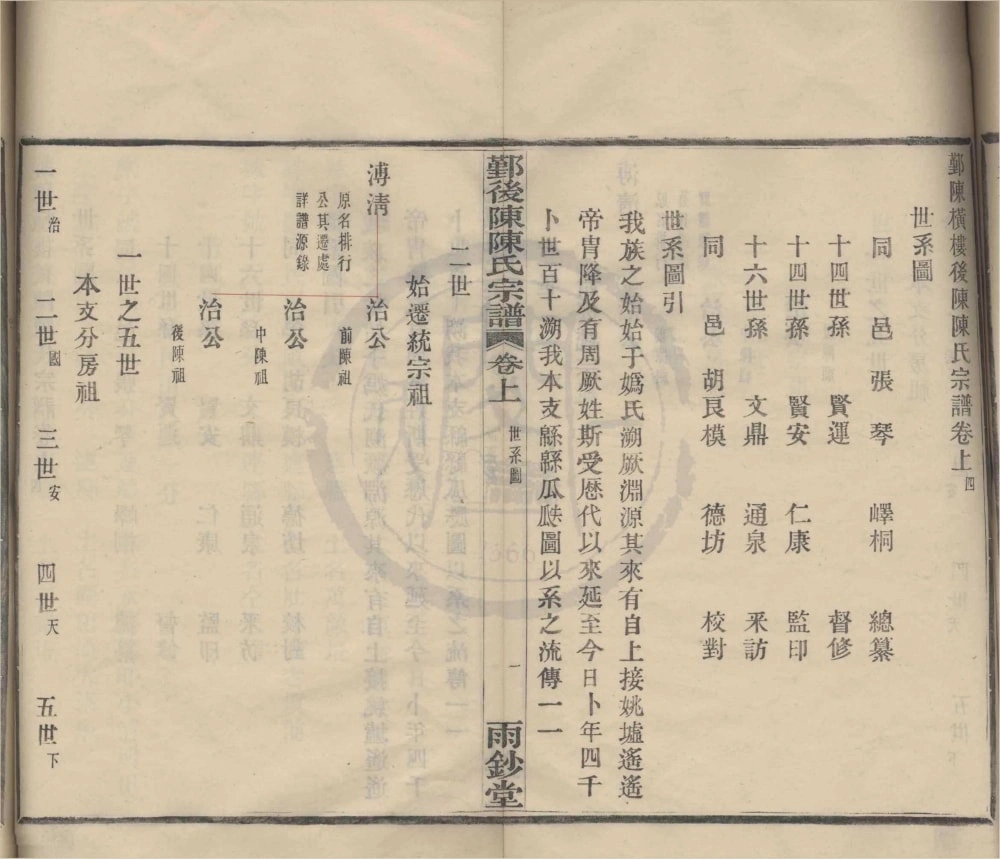 鄞陳橫樓後陳陳氏宗譜卷上 四
世系圖
同邑張琴 嶧桐 總纂
十四世孫 賢運 督修
十四世孫 賢安 仁康 監印
十六世孫 文鼎 通泉 釆訪
同邑胡良模 德坊 校對
世系圖引
我族之始始于嬀氏溯厥淵源其來有自上接姚墟遙遙
帝胄降及有周厥姓斯受厯代以來延至今日卜年四千
卜世百十溯我本支緜緜瓜瓞圖以系之流傳一一
鄞後陳陳氏宗譜 卷上 世系圖 一 雨鈔堂
二世
始遷統宗祖
溥淸 原名排行
公其遷處
詳譜源錄
治公 前陳祖
治公 中陳祖
治公 後陳祖
一世之五世
本支分房祖
一世治 二世國 三世安 四世天 五世下